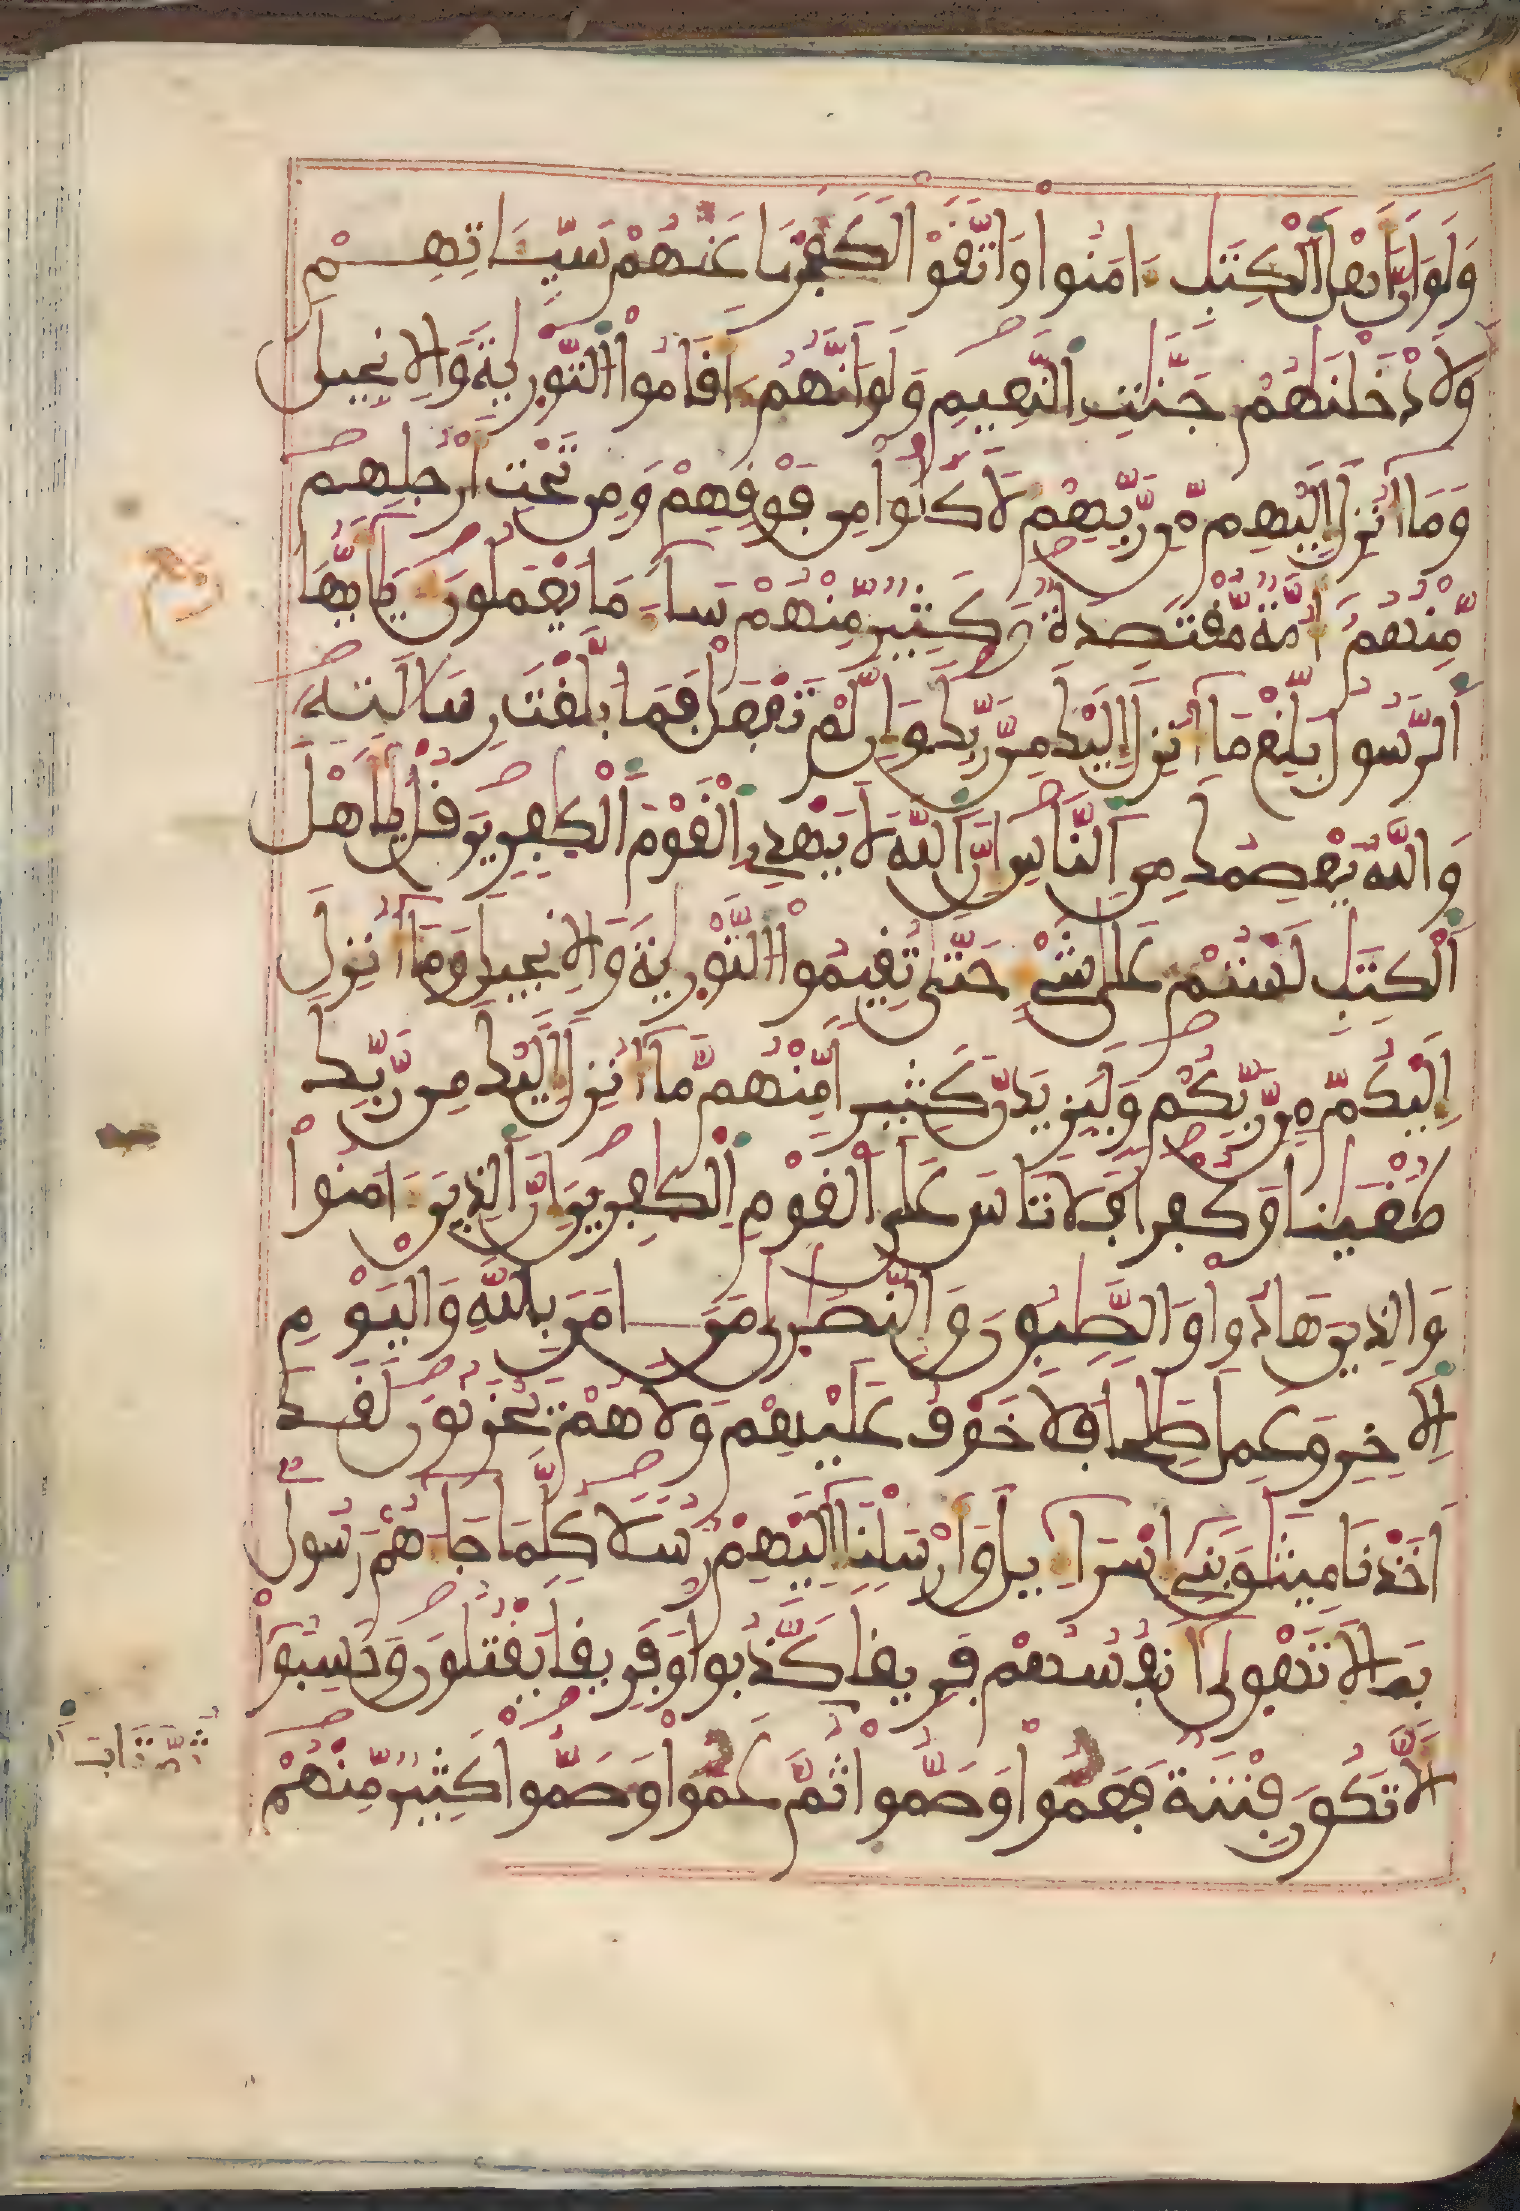 وَلَوَ اَنَّ أَهْلَ اَلْكِتَٰبِ ءَامَنُوا وَاتَّقَوْا لَكَفَّرْنَا عَنْهُمْ سَيِّـَٔاتِهِمْ
وَلَادْخَلْنَٰهُمْ جَنَّٰتِ اِلنَّعِيمِ وَلَوَ اَنَّهُمُۥ أَقَامُوا اْلتَّوْرَيٰةَ وَالِانجِيلَ
وَمَا أُنزِلَ إِلَيْهِم مِّن رَّبِّهِمْ لَأَكَلُوا مِن فَوْقِهِمْ وَمِن تَحْتِ أَرْجُلِهِم
مِّنْهُمُۥ أُمَّةٌ مُّقْتَصِدَةٌ وَكَثِيرٌ مِّنْهُمْ سَآءَ مَا يَعْمَلُونَ يَٰأَيُّهَا
اَلرَّسُولُ بَلِّغْ مَا أُنزِلَ إِلَيْكَ مِن رَّبِّكَ وَإِن لَّمْ تَفْعَلْ فَمَا بَلَّغْتَ رِسَالَٰتِهِ
وَاللَّهُ يَعْصِمُكَ مِنَ اَلنَّاسِ إِنَّ اَللَّهَ لَا يَهْدِي اِلْقَوْمَ اَلْكَٰفِرِينَ قُلْ يَٰأَهْلَ
اَلْكِتَٰبِ لَسْتُمْ عَلَىٰ شَيْءٍ حَتَّىٰ تُقِيمُوا اْلتَّوْرَيٰةَ وَالِانجِيلَ وَمَا أُنزِلَ
إِلَيْكُم مِّن رَّبِّكُمْ وَلَيَزِيدَنَّ كَثِيرًا مِّنْهُم مَّا أُنزِلَ إِلَيْكَ مِن رَّبِّكَ
طُغْيَٰنًا وَكُفْرًا فَلَا تَاسَ عَلَى اَلْقَوْمِ اِلْكَٰفِرِينَ إِنَّ اَلذِينَ ءَامَنُوا
وَالذِينَ هَادُوا وَالصَّٰبُونَ وَالنَّصَٰرَىٰ مَنَ ـ اٰمَنَ بِاللَّهِ وَالْيَوْمِ
اِلَاخِرِ وَعَمِلَ صَٰلِحًا فَلَا خَوْفٌ عَلَيْهِمْ وَلَا هُمْ يَحْزَنُونَ لَقَدَ
اَخَذْنَا مِيثَٰقَ بَنِي إِسْرَآءِيلَ وَأَرْسَلْنَا إِلَيْهِمْ رُسُلًا كُلَّمَا جَآءَهُمْ رَسُولٌ
بِمَا لَا تَهْوَىٰ أَنفُسُهُمْ فَرِيقًا كَذَّبُوا وَفَرِيقًا يَقْتُلُونَ وَحَسِبُوا
أَلَّا تَكُونَ فِتْنَةٌ فَعَمُوا وَصَمُّوا ثُمَّ عَمُوا وَصَمُّوا كَثِيرٌ مِّنْهُمْ
ثُمَّ تَابَ اَ